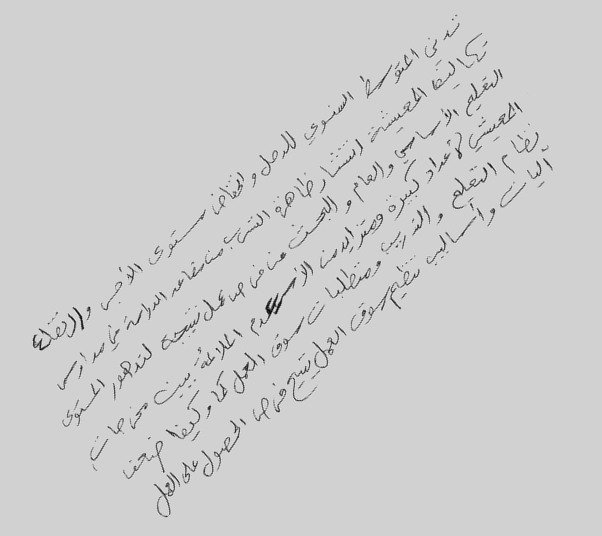 تدنى المتوسط السنوي للدخل وانخفاض مستوى الأجور وارتفاع
تكاليف المعيشة انتشار ظاهرة التسرب من مقاعد الدراسة في مدارس
التعليم الأساسي والعام والبحث عن فرص عمل نتيجة لتدهور المستوى
المعيشي لأعداد كبيرة ومتزايدة من الأسر عدم الملائمة بين مخرجات
نظام التعليم والتدريب ومتطلبات سوق العمل كما وكيفا ضعف
آليات وأساليب تنظيم سوق العمل تتيح فرص الحصول على العمل